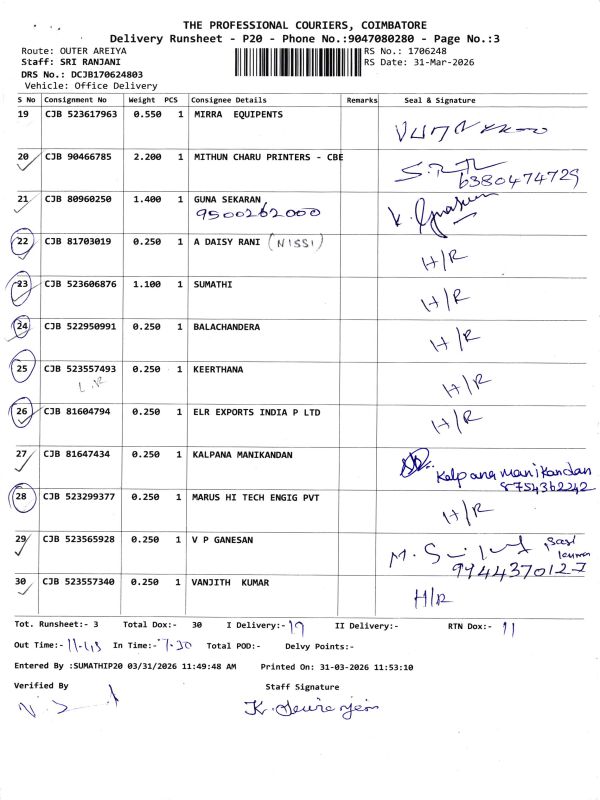 THE PROFESSIONAL COURIERS, COIMBATORE
Delivery Runsheet - P20 - Phone No.:9047080280 - Page No.:3
Route: OUTER AREIYA RS No.: 1706248
Staff: SRI RANJANI RS Date: 31-Mar-2026
DRS No.: DCJB170624803
Vehicle: Office Delivery
S No Consignment No Weight PCS Consignee Details Remarks Seal & Signature
19 CJB 523617963 0.550 1 MIRRA EQUIPENTS
20 CJB 90466785 2.200 1 MITHUN CHARU PRINTERS - CBE
6380474729
21 CJB 80960250 1.400 1 GUNA SEKARAN
9500262000
22 CJB 81703019 0.250 1 A DAISY RANI (NISSI) H/R
23 CJB 523606876 1.100 1 SUMATHI H/R
24 CJB 522950991 0.250 1 BALACHANDERA H/R
25 CJB 523557493 0.250 1 KEERTHANA H/R
26 CJB 81604794 0.250 1 ELR EXPORTS INDIA P LTD H/R
27 CJB 81647434 0.250 1 KALPANA MANIKANDAN
Kalpana manikandan
8754362242
28 CJB 523299377 0.250 1 MARUS HI TECH ENGIG PVT H/R
29 CJB 523565928 0.250 1 V P GANESAN
9944370127
30 CJB 523557340 0.250 1 VANJITH KUMAR H/R
Tot. Runsheet:- 3 Total Dox:- 30 I Delivery:- 19 II Delivery:- RTN Dox:- 11
Out Time:- 11-45 In Time:- 7-30 Total POD:- Delvy Points:-
Entered By :SUMATHIP20 03/31/2026 11:49:48 AM Printed On: 31-03-2026 11:53:10
Verified By Staff Signature